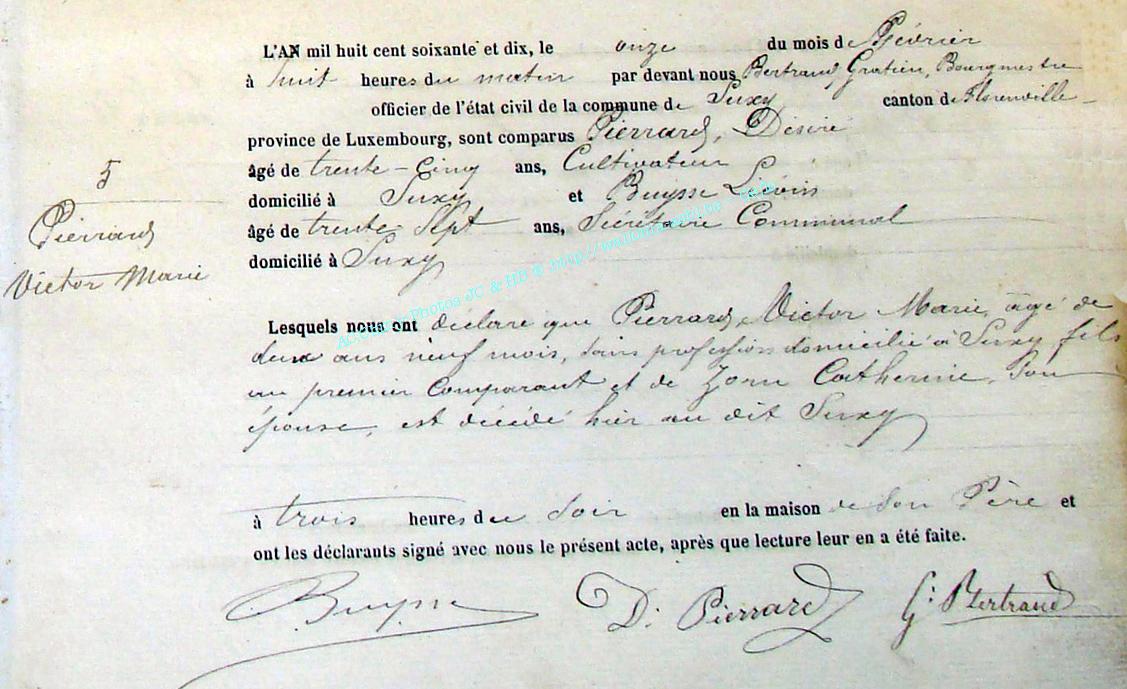 L'AN mil huit cent soixante et dix, le onze du mois de Février
à huit heures du matin par devant nous Bertrand, Gratien, Bourgmestre
officier de l'état civil de la commune de Suxy canton de Florenville
province de Luxembourg, sont comparus Pierrard, Désiré
âgé de trente-cinq ans, Cultivateur
domicilié à Suxy et Buysse Liévin
âgé de trente Sept ans, Sécrétaire Communal
domicilié à Suxy
5
Pierrard
Victor Marie
Lesquels nous ont déclaré que Pierrard, Victor Marie, âgé de
deux ans neuf mois, sans profession domicilié à Suxy, fils
au premier Comparant et de Catherine, son
épouse, est décédé hier au dit Suxy
à trois heures du Soir en la maison de Son Père et
ont les déclarants signé avec nous le présent acte, après que lecture leur en a été faite.
Buysse D. Pierrard G. Bertrand
Photos JC & HB @ http://